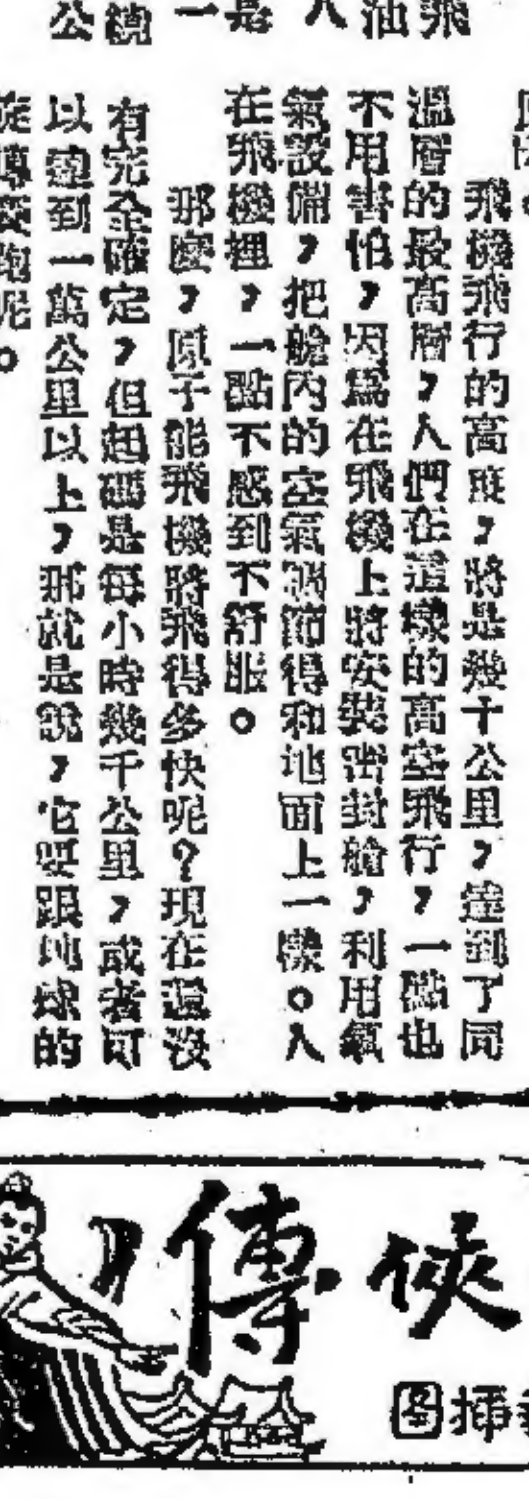 飛機飛行的高度，將是幾十公里，達到了同
溫層的最高層，人們在這樣的高空飛行，一點也
不用害怕，因爲在飛機上將安裝密封艙，利用氣
氣設備，把艙內的空氣調節得和地面上一樣。人
在飛機裡，一點不感到不舒服。
那麼，原子能飛機將飛得多快呢？現在還沒
有完全確定，但起碼是每小時幾千公里，或者可
以達到一萬公里以上，那就是說，它要跟地球的
旋轉賽跑呢。
俠傳
插图